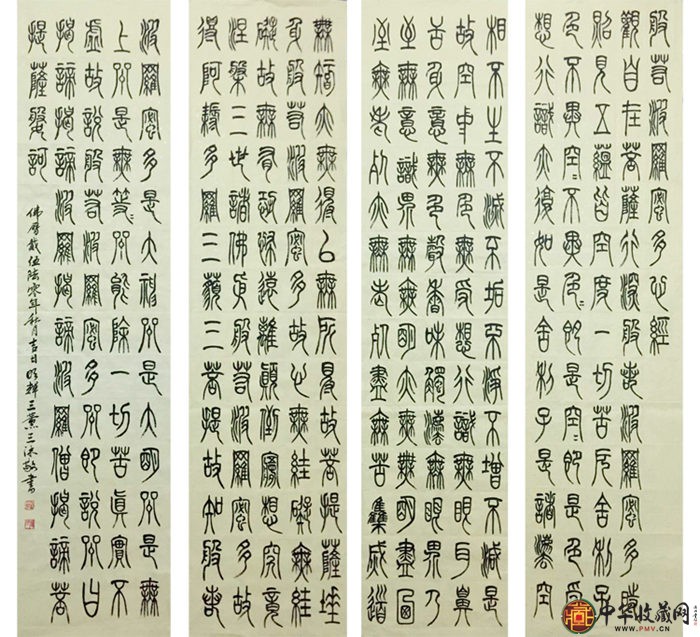 般若波羅蜜多心經
觀自在菩薩行深般若波羅蜜多時
照見五蘊皆空度一切苦厄舍利子
色不異空〻不異色〻即是空〻即是色受
想行識亦復如是舍利子是諸法空
相不生不滅不垢不淨不增不減是
故空中無色無受想行識無眼耳鼻
舌身意無色聲香味觸法無眼界乃
至無意識界無無明亦無無明盡乃
至無老死亦無老死盡無苦集滅道
無智亦無得以無所得故菩提薩埵
依般若波羅蜜多故心無罣礙無罣
礙故無有恐怖遠離顛倒夢想究竟
涅槃三世諸佛依般若波羅蜜多故
得阿耨多羅三藐三菩提故知般若
波羅蜜多是大神咒是大明咒是無
上咒是無等〻咒能除一切苦真實不
虛故說般若波羅蜜多咒即說咒曰
揭諦揭諦波羅揭諦波羅僧揭諦菩
提薩婆訶
佛曆貳伍陸零年秋月吉日明輝三薰三沐敬書
中华收藏网
WWW.PMV.CN